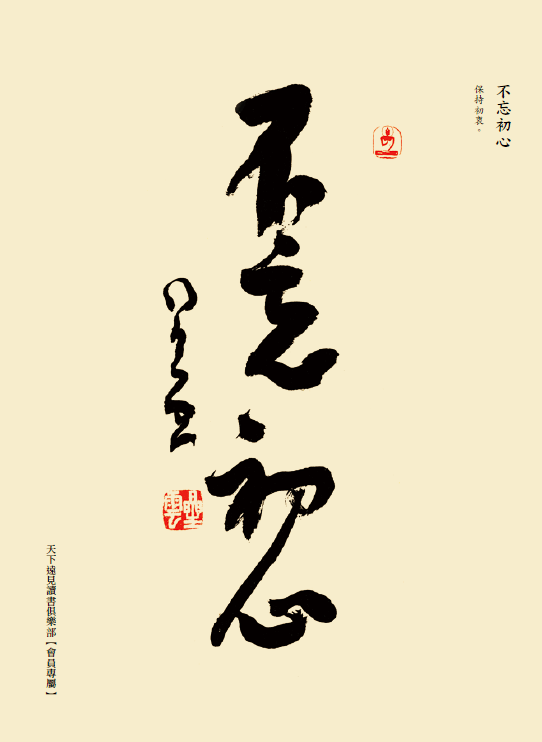 不忘初心
保持初衷。
不忘初心
星雲
星雲
天下遠見讀書俱樂部【會員專屬】